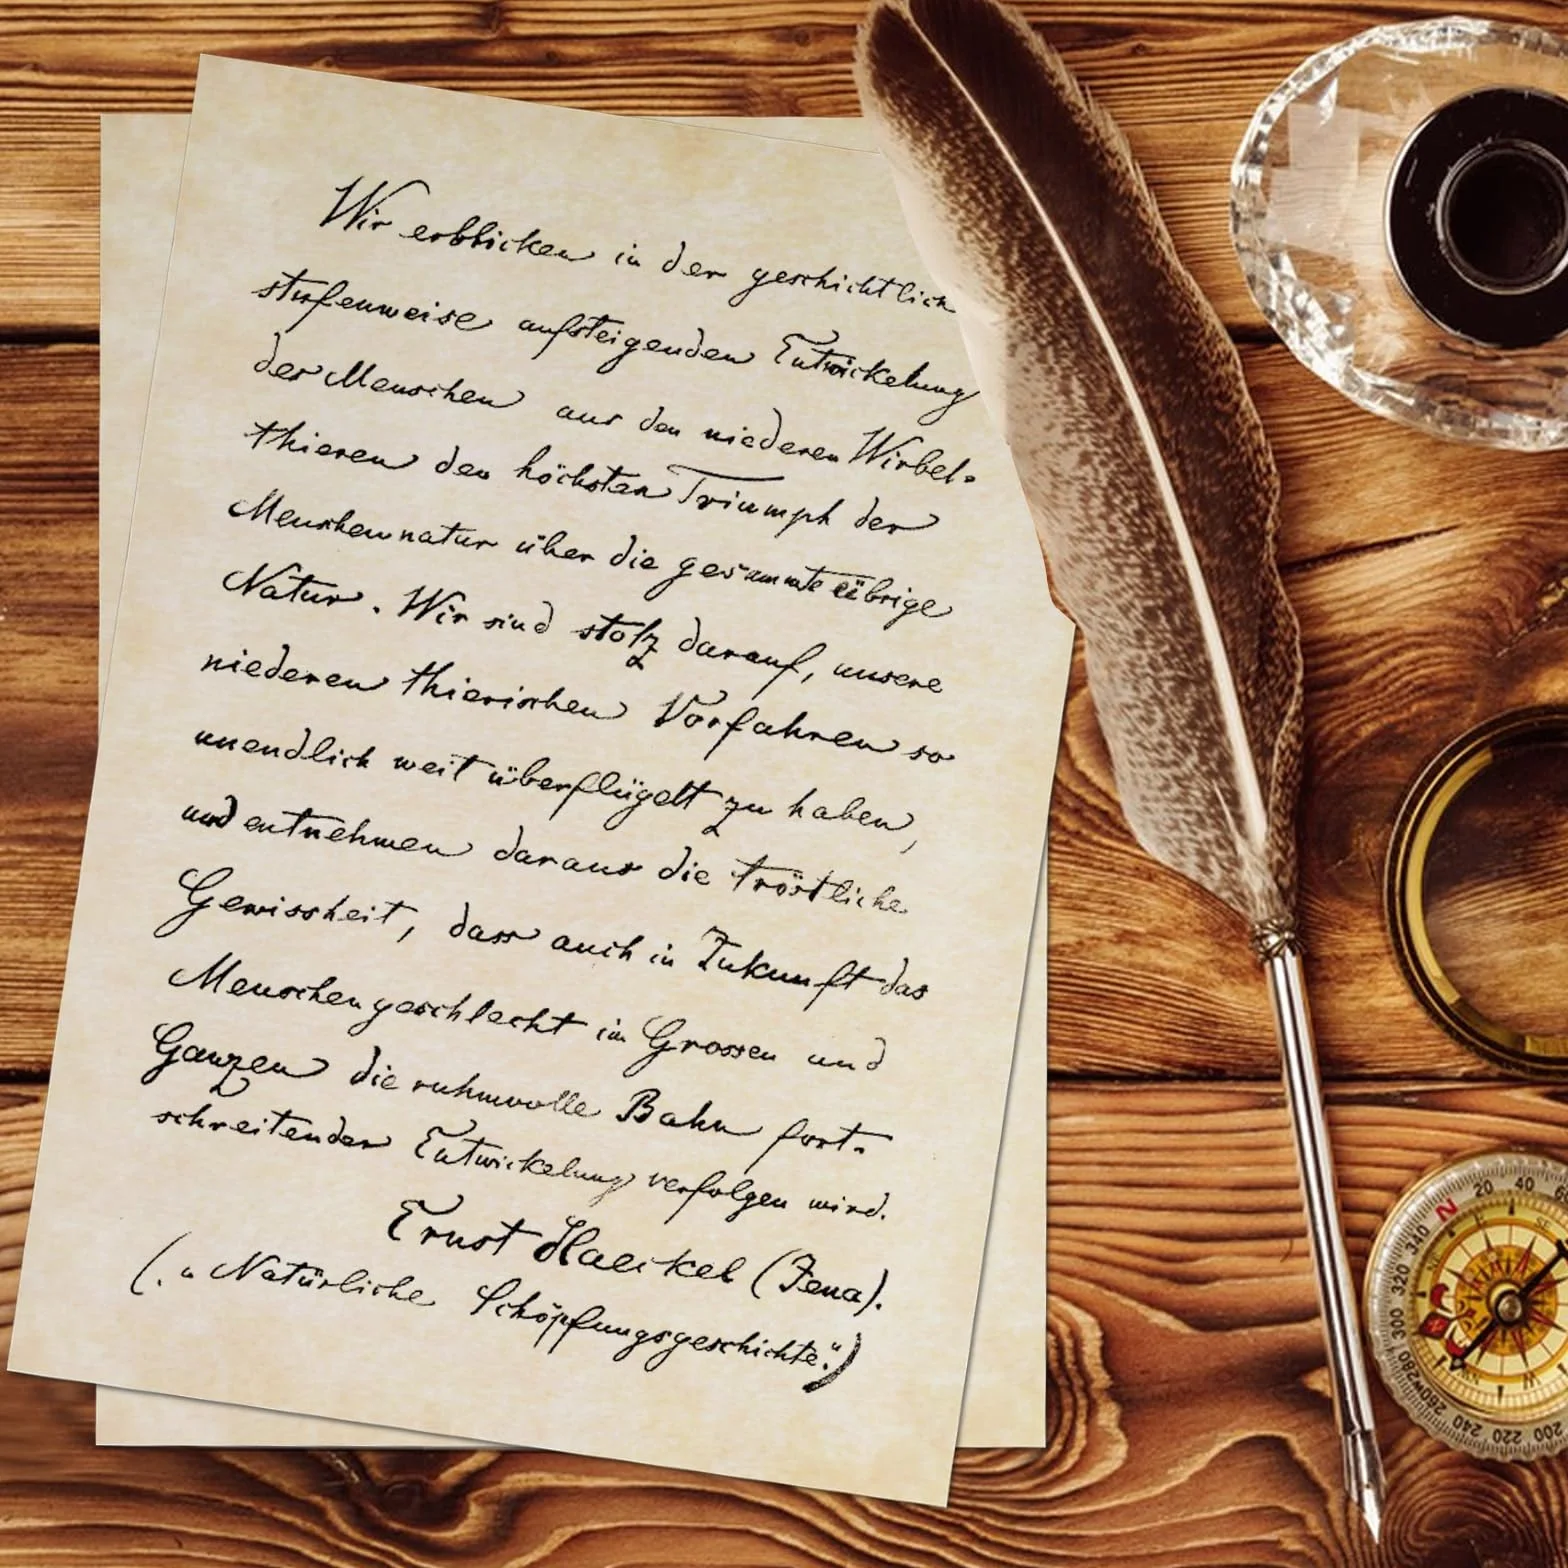 Wir erblicken in der geschichtlich
stufenweise aufsteigenden Entwickelung
der Menschen aus den niederen Wirbel-
thieren den höchsten Triumph der
Menschennatur über die gesammte übrige
Natur. Wir sind stolz darauf, unsere
niederen thierischen Vorfahren so
unendlich weit überflügelt zu haben,
und entnehmen daraus die tröstliche
Gewissheit, dass auch in Zukunft das
Menschengeschlecht im Grossen und
Ganzen die ruhmvolle Bahn fort-
schreitender Entwickelung verfolgen wird.
Ernst Haeckel (Jena).
(„Natürliche Schöpfungsgeschichte.“)
N 20 40
340
320
300
280
260 W
240
220
200